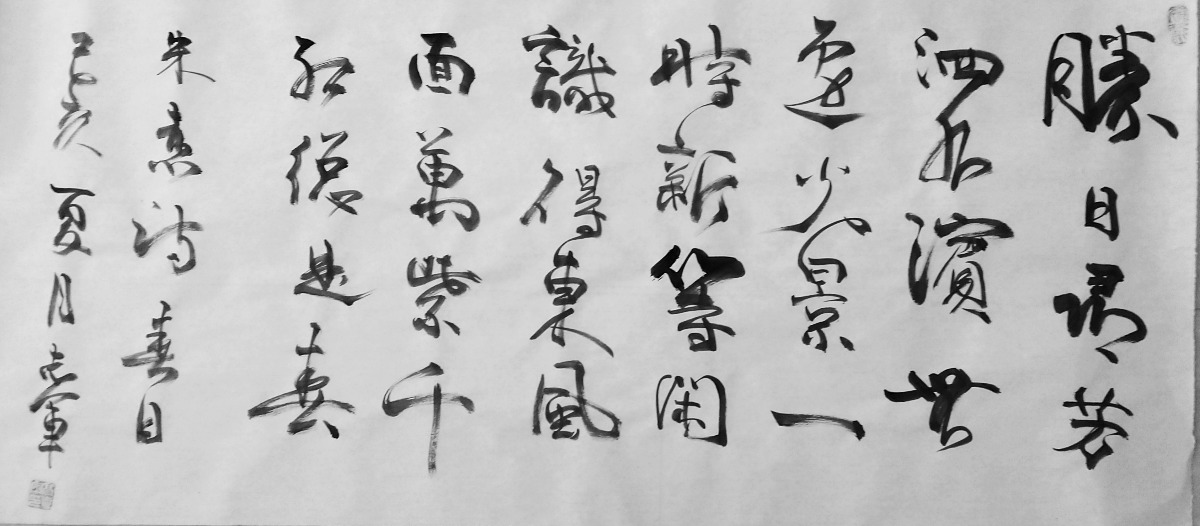 勝日尋芳
泗水濱無
邊光景一
時新等閑
識得東風
面萬紫千
紅總是春
朱熹詩春日
己亥夏月志軍